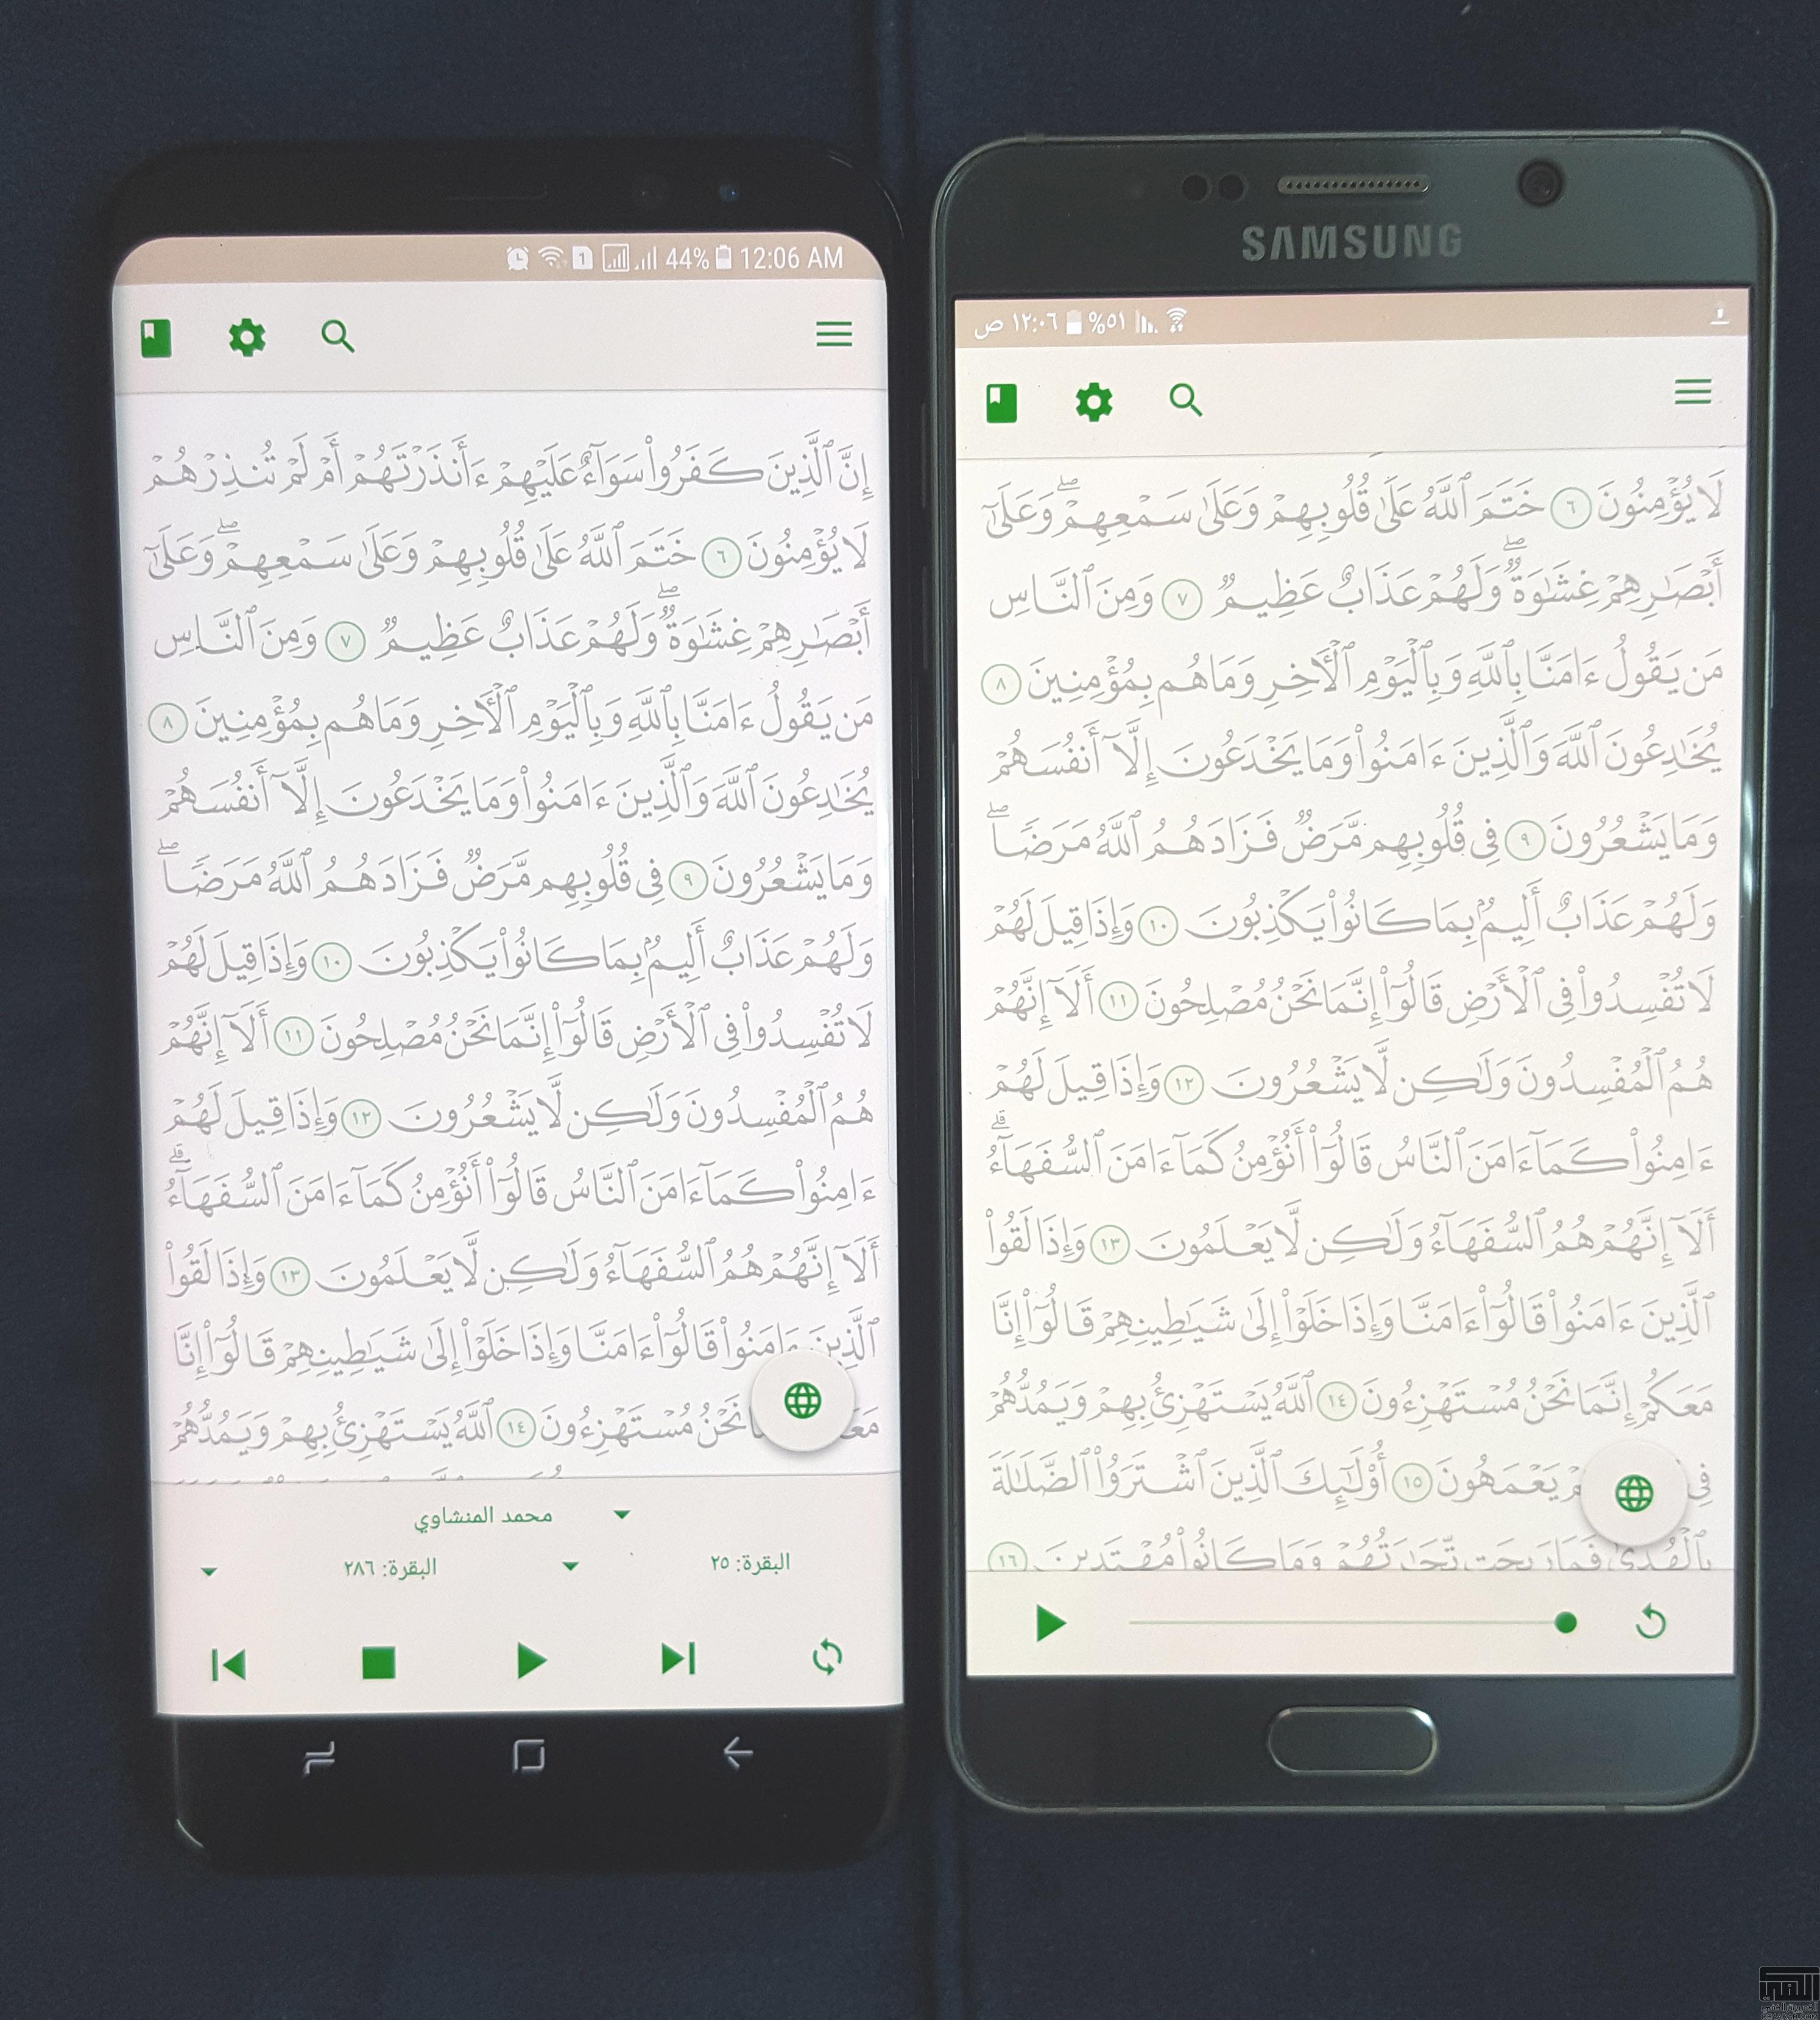 44% 12:06 AM
إِنَّ ٱلَّذِينَ كَفَرُوا۟ سَوَآءٌ عَلَيْهِمْ ءَأَنذَرْتَهُمْ أَمْ لَمْ تُنذِرْهُمْ
لَا يُؤْمِنُونَ ٦ خَتَمَ ٱللَّهُ عَلَىٰ قُلُوبِهِمْ وَعَلَىٰ سَمْعِهِمْ ۖ وَعَلَىٰٓ
أَبْصَـٰرِهِمْ غِشَـٰوَةٌ ۖ وَلَهُمْ عَذَابٌ عَظِيمٌ ٧ وَمِنَ ٱلنَّاسِ
مَن يَقُولُ ءَامَنَّا بِٱللَّهِ وَبِٱلْيَوْمِ ٱلْـَٔاخِرِ وَمَا هُم بِمُؤْمِنِينَ ٨
يُخَـٰدِعُونَ ٱللَّهَ وَٱلَّذِينَ ءَامَنُوا۟ وَمَا يَخْدَعُونَ إِلَّآ أَنفُسَهُمْ
وَمَا يَشْعُرُونَ ٩ فِى قُلُوبِهِم مَّرَضٌ فَزَادَهُمُ ٱللَّهُ مَرَضًا ۖ
وَلَهُمْ عَذَابٌ أَلِيمٌۢ بِمَا كَانُوا۟ يَكْذِبُونَ ١٠ وَإِذَا قِيلَ لَهُمْ
لَا تُفْسِدُوا۟ فِى ٱلْأَرْضِ قَالُوٓا۟ إِنَّمَا نَحْنُ مُصْلِحُونَ ١١ أَلَآ إِنَّهُمْ
هُمُ ٱلْمُفْسِدُونَ وَلَـٰكِن لَّا يَشْعُرُونَ ١٢ وَإِذَا قِيلَ لَهُمْ
ءَامِنُوا۟ كَمَآ ءَامَنَ ٱلنَّاسُ قَالُوٓا۟ أَنُؤْمِنُ كَمَآ ءَامَنَ ٱلسُّفَهَآءُ ۗ
أَلَآ إِنَّهُمْ هُمُ ٱلسُّفَهَآءُ وَلَـٰكِن لَّا يَعْلَمُونَ ١٣ وَإِذَا لَقُوا۟
ٱلَّذِينَ ءَامَنُوا۟ قَالُوٓا۟ ءَامَنَّا وَإِذَا خَلَوْا۟ إِلَىٰ شَيَـٰطِينِهِمْ قَالُوٓا۟ إِنَّا
نَحْنُ مُسْتَهْزِءُونَ ١٤ ٱللَّهُ يَسْتَهْزِئُ بِهِمْ وَيَمُدُّهُمْ
محمد المنشاوي
البقرة: ٢٥ البقرة: ٢٨٦
SAMSUNG
٥١% ١٢:٠٦ ص
لَا يُؤْمِنُونَ ٦ خَتَمَ ٱللَّهُ عَلَىٰ قُلُوبِهِمْ وَعَلَىٰ سَمْعِهِمْ ۖ وَعَلَىٰٓ
أَبْصَـٰرِهِمْ غِشَـٰوَةٌ ۖ وَلَهُمْ عَذَابٌ عَظِيمٌ ٧ وَمِنَ ٱلنَّاسِ
مَن يَقُولُ ءَامَنَّا بِٱللَّهِ وَبِٱلْيَوْمِ ٱلْـَٔاخِرِ وَمَا هُم بِمُؤْمِنِينَ ٨
يُخَـٰدِعُونَ ٱللَّهَ وَٱلَّذِينَ ءَامَنُوا۟ وَمَا يَخْدَعُونَ إِلَّآ أَنفُسَهُمْ
وَمَا يَشْعُرُونَ ٩ فِى قُلُوبِهِم مَّرَضٌ فَزَادَهُمُ ٱللَّهُ مَرَضًا ۖ
وَلَهُمْ عَذَابٌ أَلِيمٌۢ بِمَا كَانُوا۟ يَكْذِبُونَ ١٠ وَإِذَا قِيلَ لَهُمْ
لَا تُفْسِدُوا۟ فِى ٱلْأَرْضِ قَالُوٓا۟ إِنَّمَا نَحْنُ مُصْلِحُونَ ١١ أَلَآ إِنَّهُمْ
هُمُ ٱلْمُفْسِدُونَ وَلَـٰكِن لَّا يَشْعُرُونَ ١٢ وَإِذَا قِيلَ لَهُمْ
ءَامِنُوا۟ كَمَآ ءَامَنَ ٱلنَّاسُ قَالُوٓا۟ أَنُؤْمِنُ كَمَآ ءَامَنَ ٱلسُّفَهَآءُ ۗ
أَلَآ إِنَّهُمْ هُمُ ٱلسُّفَهَآءُ وَلَـٰكِن لَّا يَعْلَمُونَ ١٣ وَإِذَا لَقُوا۟
ٱلَّذِينَ ءَامَنُوا۟ قَالُوٓا۟ ءَامَنَّا وَإِذَا خَلَوْا۟ إِلَىٰ شَيَـٰطِينِهِمْ قَالُوٓا۟ إِنَّا
مَعَكُمْ إِنَّمَا نَحْنُ مُسْتَهْزِءُونَ ١٤ ٱللَّهُ يَسْتَهْزِئُ بِهِمْ وَيَمُدُّهُمْ
فِى يَعْمَهُونَ ١٥ أُو۟لَـٰٓئِكَ ٱلَّذِينَ ٱشْتَرَوُا۟ ٱلضَّلَـٰلَةَ
بِٱلْهُدَىٰ فَمَا رَبِحَت تِّجَـٰرَتُهُمْ وَمَا كَانُوا۟ مُهْتَدِينَ ١٦